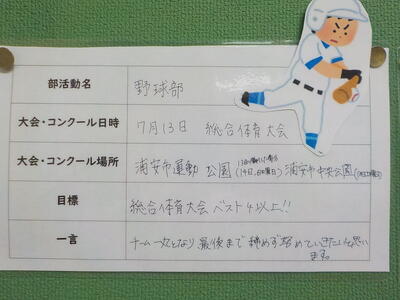 部活動名 野球部
大会・コンクール日時 7月13日 総合体育大会
大会・コンクール場所 浦安市運動公園 (14日,日曜日) 浦安市中央公園
目標 総合体育大会ベスト4以上!!
一言 チーム一丸となり最後まで諦めず努めていきたいと思い
ます。